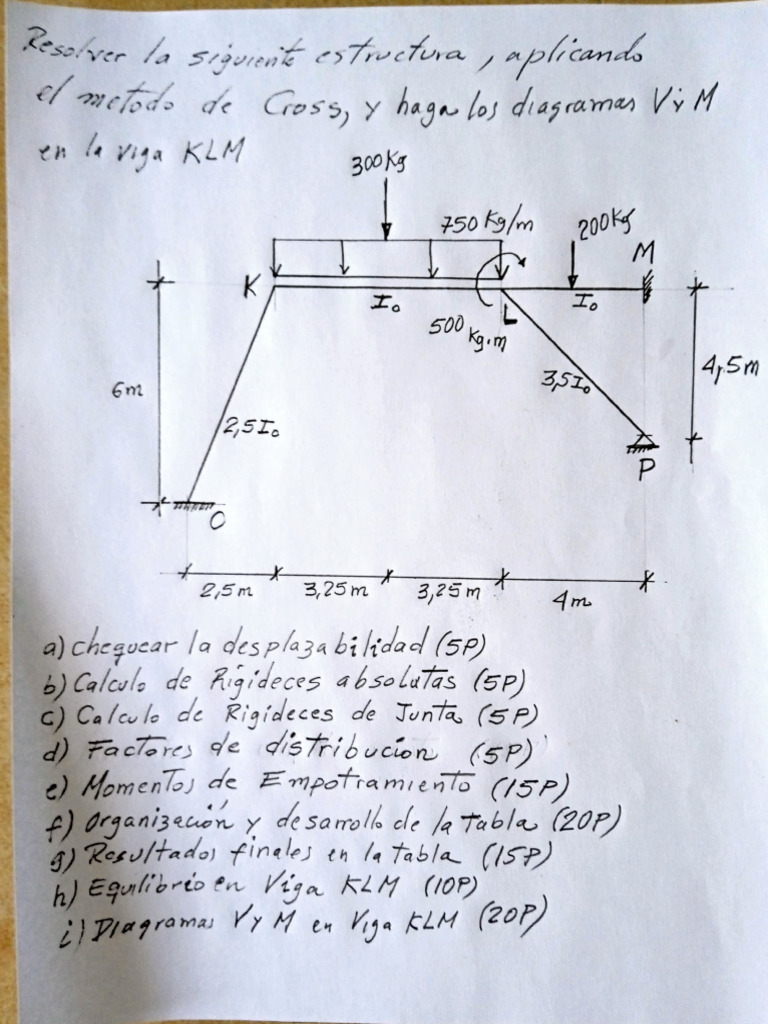 Resolver la siguiente estructura, aplicando
el metodo de Cross, y haga los diagramas V y M
en la viga KLM
300Kg
750 Kg/m
200Kg
M
K
I₀
L
I₀
500 Kg.m
6m
2,5I₀
3,5I₀
4,5m
P
O
2,5m
3,25m
3,25m
4m
a) Chequear la desplazabilidad (5P)
b) Calculo de Rigideces absolutas (5P)
c) Calculo de Rigideces de Junta (5P)
d) Factores de distribucion (5P)
e) Momentos de Empotramiento (15P)
f) Organización y desarrollo de la tabla (20P)
g) Resultados finales en la tabla (15P)
h) Equilibrio en Viga KLM (10P)
i) Diagramas V y M en Viga KLM (20P)